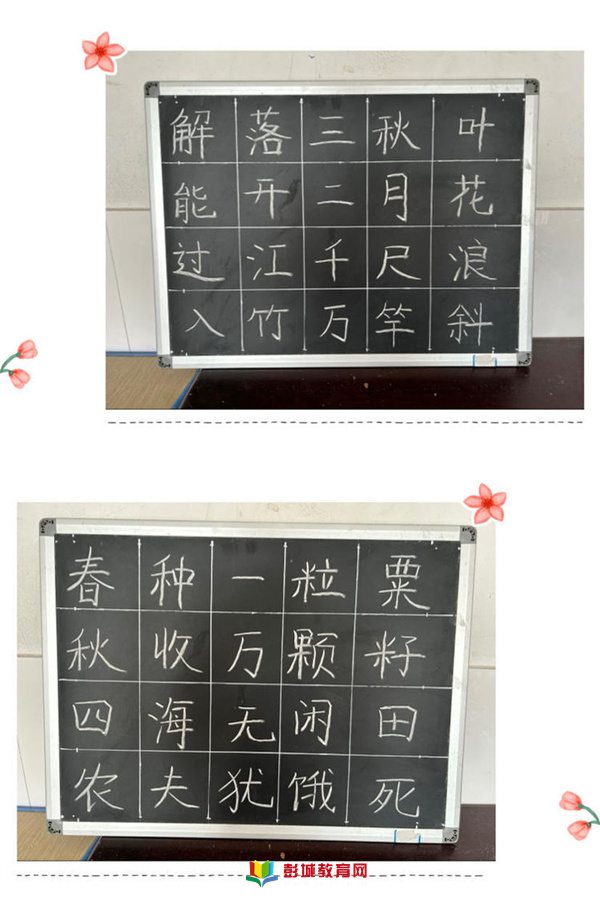 解落三秋叶
能开二月花
过江千尺浪
入竹万竿斜
春种一粒粟
秋收万颗籽
四海无闲田
农夫犹饿死
彭城教育网